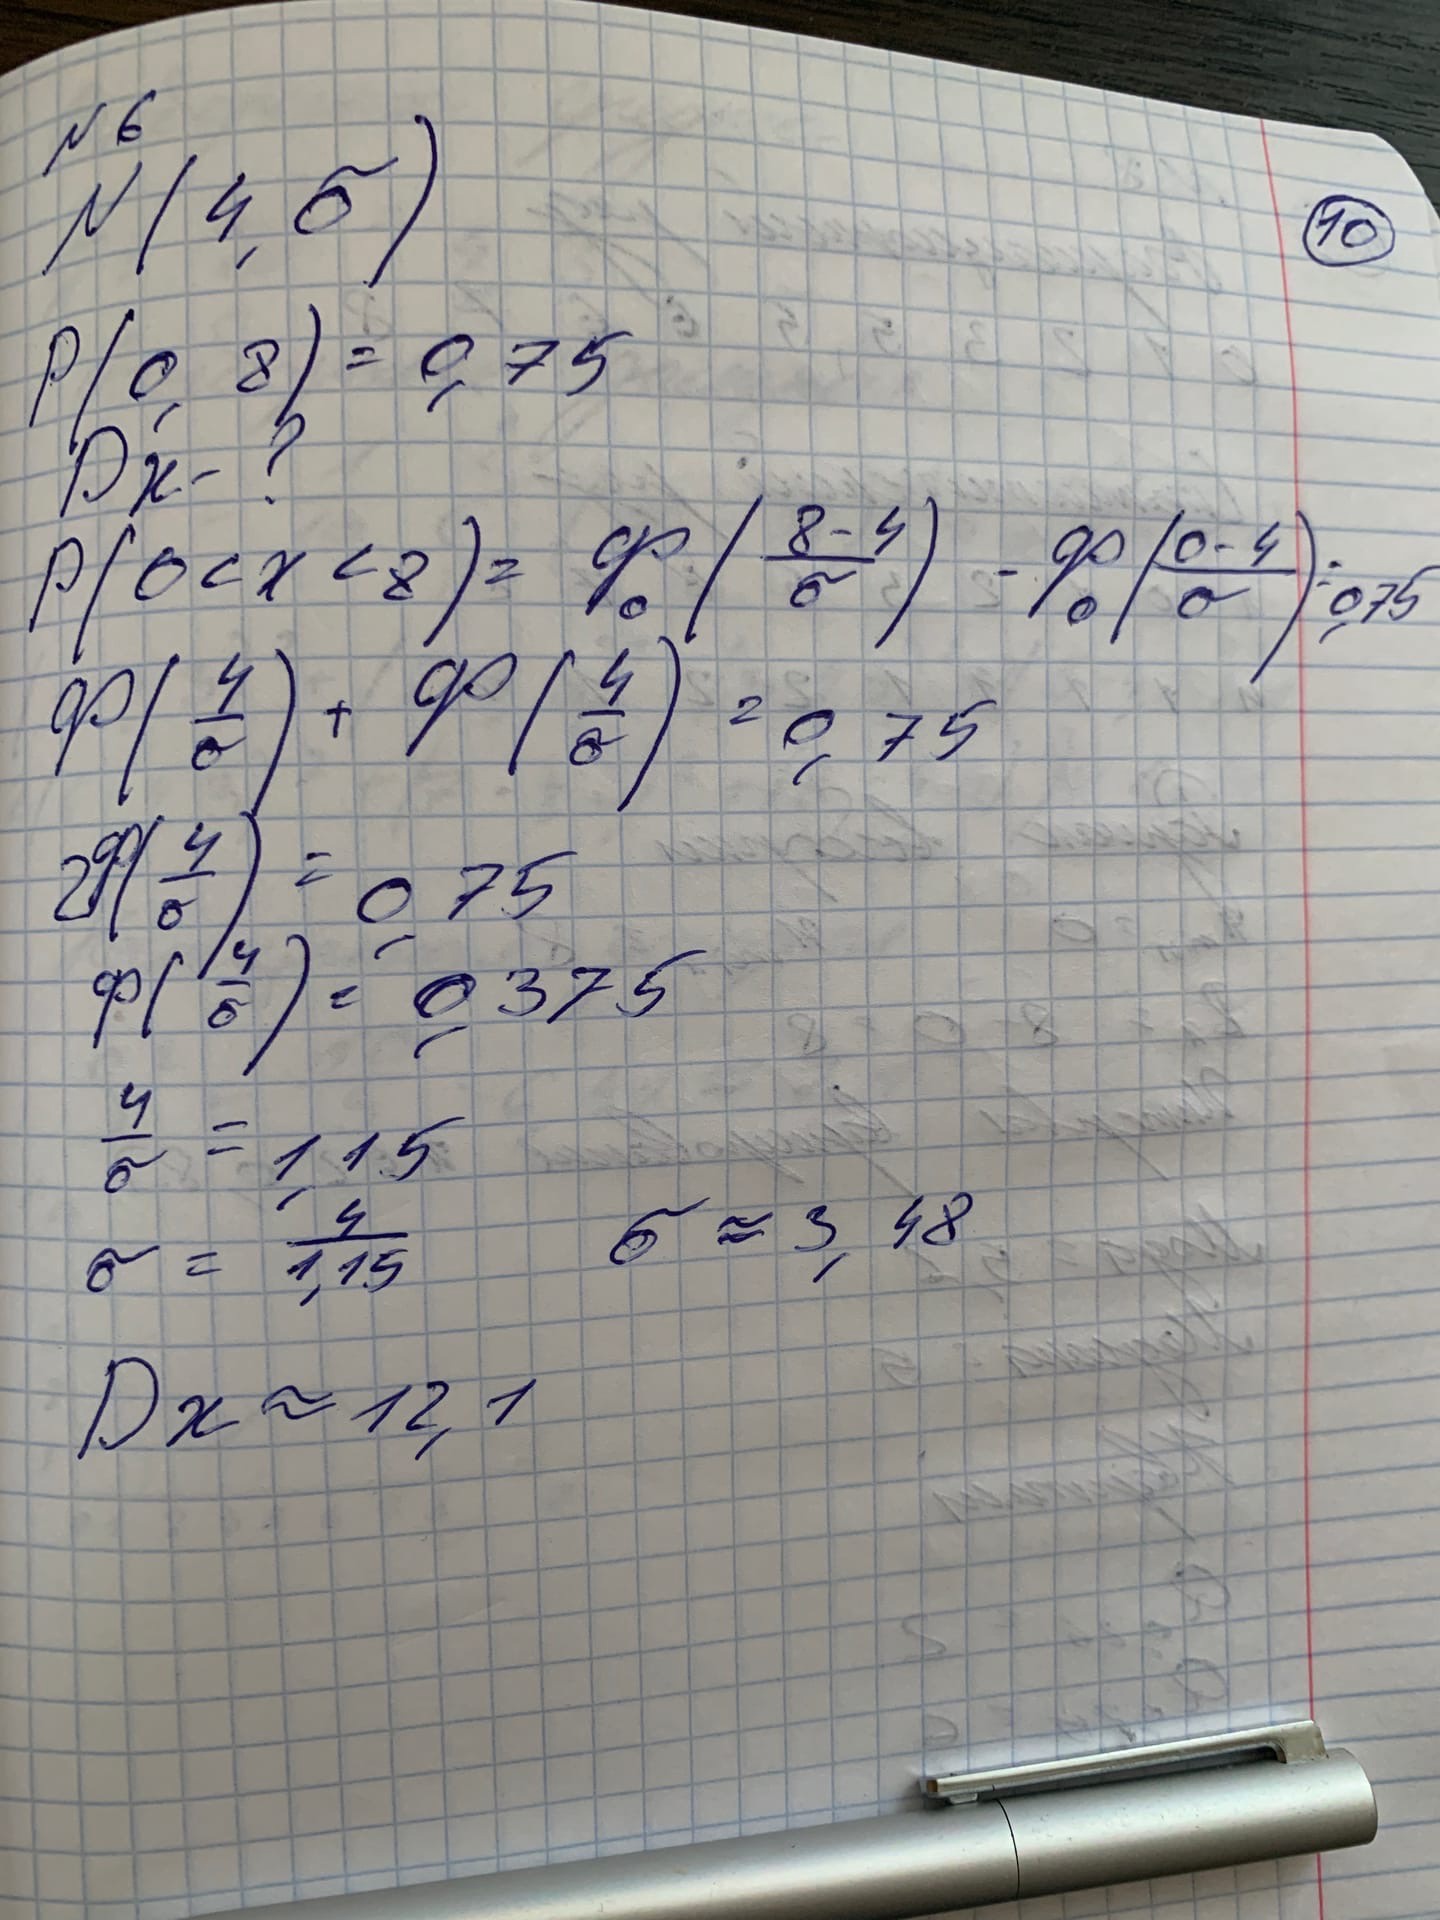 N 6
N(4, σ)
10
P(0, 8) = 0,75
Dx - ?
P(0 < x < 8) = Ф₀((8-4)/σ) - Ф₀((0-4)/σ) = 0,75
Ф(4/σ) + Ф(4/σ) = 0,75
2Ф(4/σ) = 0,75
Ф(4/σ) = 0,375
4/σ = 1,15
σ = 4/1,15 σ ≈ 3,48
Dx ≈ 12,1